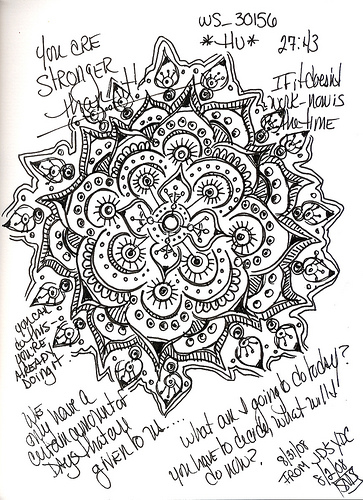 WS_30156
*HU* 27:43
YOU ARE
STRONGER
than
IF it doesn't
work-now is
the time
YOU CAN
do this
YOU'RE
ALREADY
DOING it
WE
only have a
certain amount of
Days that are
given to us....
What am I going to do today?
you have to decide, what will I
do now?
8/31/08
FROM